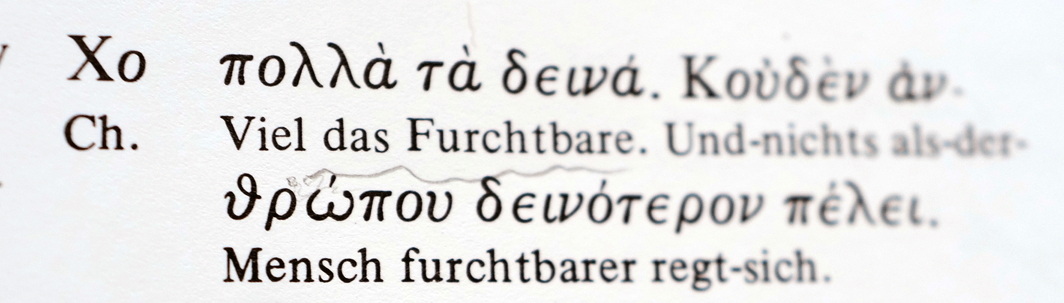 Χο πολλὰ τὰ δεινά. Κοὐδὲν ἀν-
Ch. Viel das Furchtbare. Und-nichts als-der-
θρώπου δεινότερον πέλει.
Mensch furchtbarer regt-sich.